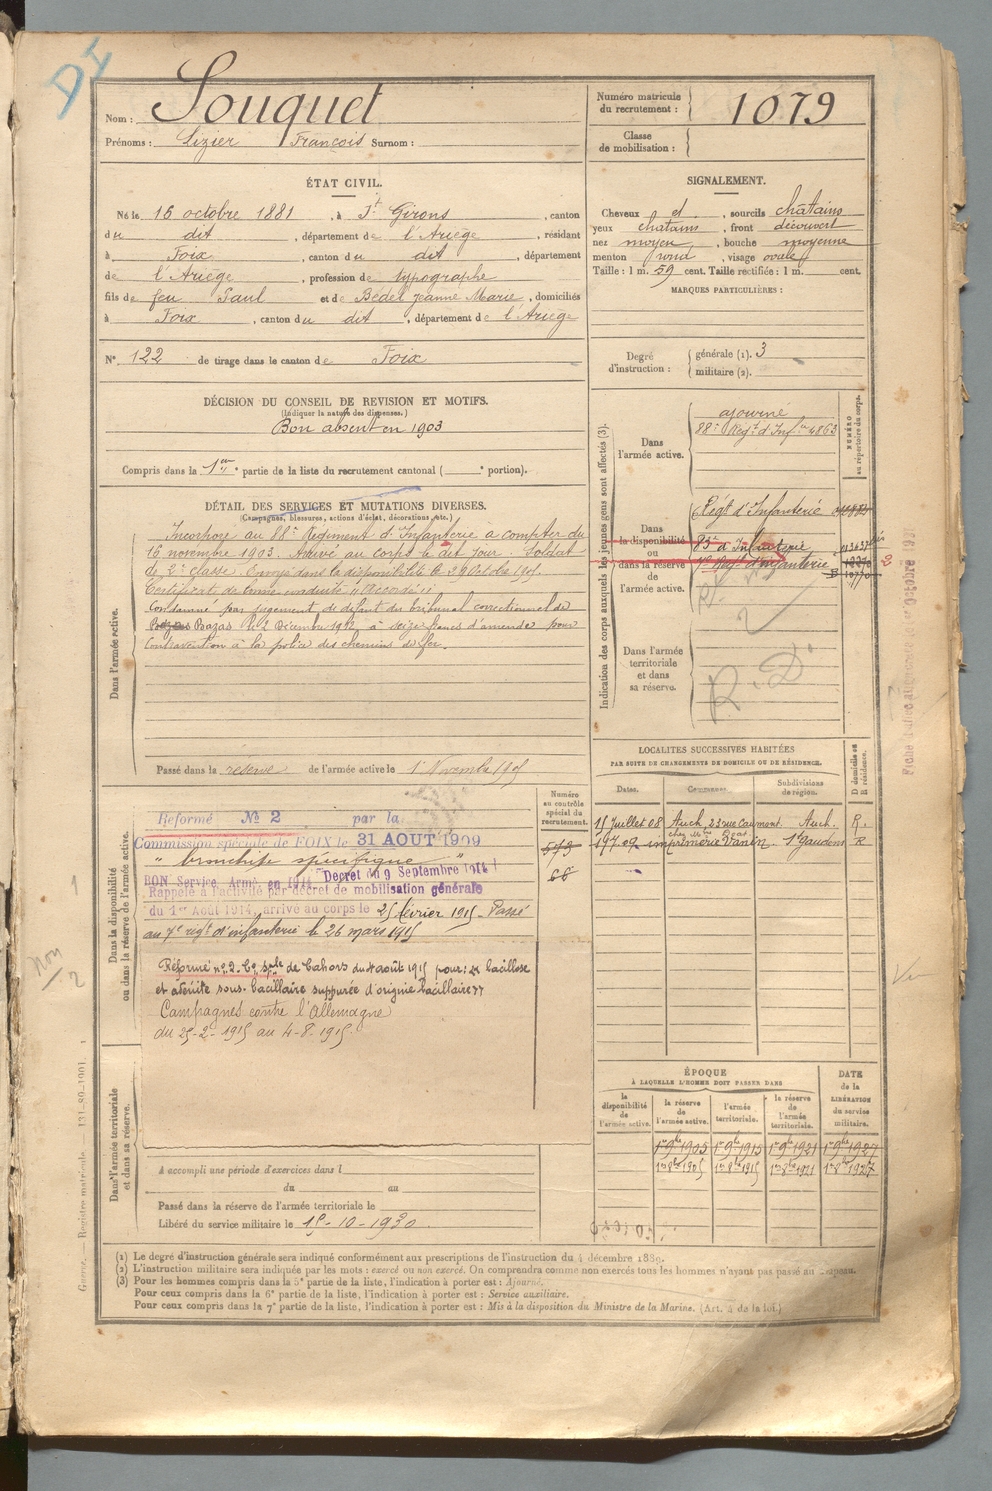 DI
Nom : Souquet
Prénoms : Lizier François Surnom :
Numéro matricule du recrutement : 1079
Classe de mobilisation :
ÉTAT CIVIL.
Né le 16 octobre 1881, à St Girons, canton
du dit, département de l'Ariège, résidant
à Foix, canton du dit, département
de l'Ariège, profession de typographe
fils de feu Paul et de Bédel Jeanne Marie, domiciliés
à Foix, canton du dit, département de l'Ariège
N° 122 de tirage dans le canton de Foix
SIGNALEMENT.
Cheveux et, sourcils châtains
yeux chatains, front découvert
nez moyen, bouche moyenne
menton rond, visage ovale
Taille : 1 m. 59 cent. Taille rectifiée : 1 m. cent.
MARQUES PARTICULIÈRES :
Degré d'instruction : générale (1). 3
militaire (2).
DÉCISION DU CONSEIL DE REVISION ET MOTIFS.
(Indiquer la nature des dispenses.)
Bon absent en 1903
Compris dans la 1ère partie de la liste du recrutement cantonal ( e portion).
DÉTAIL DES SERVICES ET MUTATIONS DIVERSES.
(Campagnes, blessures, actions d'éclat, décorations, etc.)
Dans l'armée active.
Incorporé au 88e Régiment d'Infanterie à compter du
16 novembre 1903. Arrivé au corps le dit jour. Soldat
de 2e classe. Envoyé dans la disponibilité le
Certificat de bonne conduite "Accordé"
Condamné par jugement de défaut du tribunal correctionnel de
Bazas le 2 Décembre 1912 à seize francs d'amende pour
contravention à la police des chemins de fer.
Passé dans la réserve de l'armée active le 1 Novembre 1905
Indication des corps auxquels les jeunes gens sont affectés (3).
NUMÉRO au répertoire du corps.
Dans l'armée active.
ajourné
88e Régt d'Infie 4863
Dans la disponibilité ou dans la réserve de l'armée active.
Régt d'Infanterie
83e d'Infanterie
Régt d'Infanterie
Dans l'armée territoriale et dans sa réserve.
R. D.
Fiche
LOCALITÉS SUCCESSIVES HABITÉES
PAR SUITE DE CHANGEMENTS DE DOMICILE OU DE RÉSIDENCE.
Dates. Communes. Subdivisions de région. D domicile ou R résidence.
15 Juillet 08 Auch, 23 rue Caumont. Auch. R.
imprimerie St Gaudens R
Dans la disponibilité ou dans la réserve de l'armée active.
Numéro au contrôle spécial du recrutement.
573
68
Réformé N° 2 par la
Commission spéciale de FOIX le 31 AOUT 1909
"bronchite spécifique"
BON Service Armé en 1914 Décret du 9 Septembre 1914
Rappelé à l'activité par décret de mobilisation générale
du 1er Août 1914, arrivé au corps le 25 février 1915 - Passé
au 7e régt d'infanterie le 26 mars 1915
Réformé n° 2 Con spale de Cahors du 4 août 1915 pour : bacillose
et adénite sous- suppurée d'origine bacillaire
Campagnes contre l'Allemagne
du 25-2-1915 au 4-8-1915.
Non
2
ÉPOQUE
À LAQUELLE L'HOMME DOIT PASSER DANS
la disponibilité de l'armée active. la réserve de l'armée active. l'armée territoriale. la réserve de l'armée territoriale.
DATE de la LIBÉRATION du service militaire.
1er 9bre 1905 1er 9bre 1915 1er 9bre 1921 1er 9bre 1927
1er 8bre 1905 1er 8bre 1915 1er 8bre 1921 1er 8bre 1927
Dans l'armée territoriale et dans sa réserve.
A accompli une période d'exercices dans l
du au
Passé dans la réserve de l'armée territoriale le
Libéré du service militaire le 15-10-1930
Guerre. — Registre matricule.
(1) Le degré d'instruction générale sera indiqué conformément aux prescriptions de l'instruction du 4 décembre 1889.
(2) L'instruction militaire sera indiquée par les mots : exercé ou non exercé. On comprendra comme non exercés tous les hommes n'ayant pas passé au drapeau.
(3) Pour les hommes compris dans la 5e partie de la liste, l'indication à porter est : Ajourné.
Pour ceux compris dans la 6e partie de la liste, l'indication à porter est : Service auxiliaire.
Pour ceux compris dans la 7e partie de la liste, l'indication à porter est : Mis à la disposition du Ministre de la Marine. (Art. 4 de la loi.)